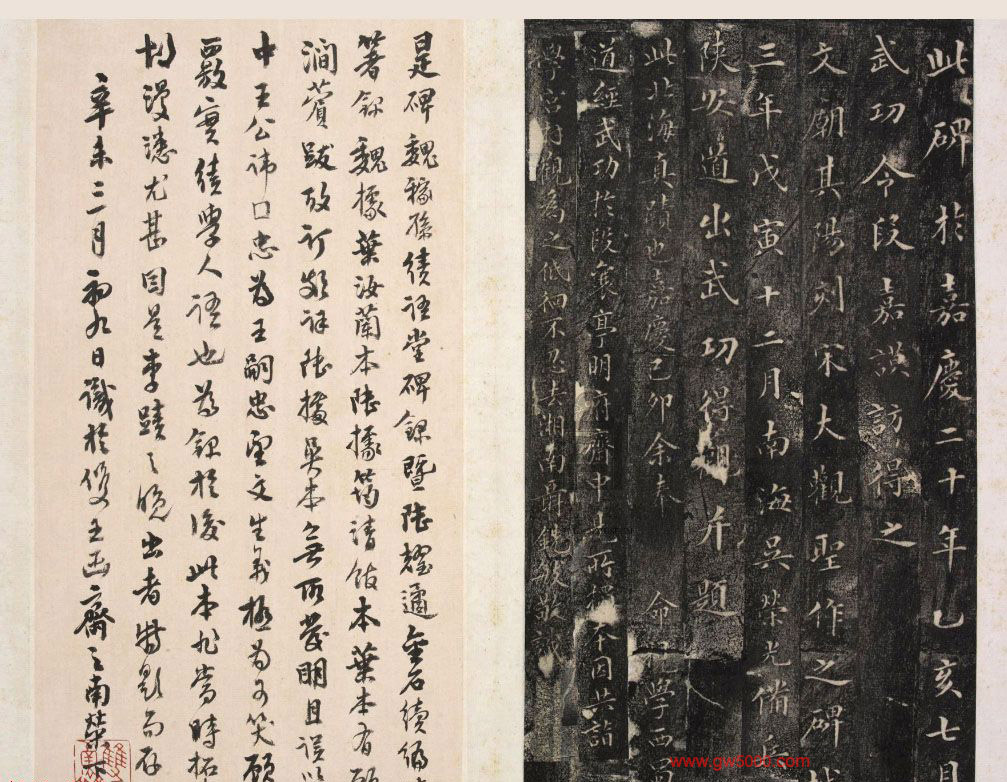 此碑於嘉慶二十年乙亥七月
武功令段嘉謨訪得之
文廟其陽刻宋大觀聖作之碑
三年戊寅十二月南海吳榮光備兵
陝安道出武功得觀并題
此北海真蹟也嘉慶己卯余奉 命視學西
道經武功於段襄亭明府齋中見所搨本因共詣
學宮觀為之低徊不忍去湘南聶銑敏敬識
是碑魏稼孫績語堂碑錄暨陸耀遹金石續編
著錄魏據葉汝蘭本陸據筠清館本葉本有顧
澗薲跋攷訂頗詳陸據吳本無所發明且誤以
中王公諱口忠為王嗣忠望文生義極為可笑顧
覈實績學人語也為錄於後此本非當時拓
刓漫漶尤甚因是李蹟之晚出者特影而存
辛未三月初九日識於雙玉函齋之南榮
www.gw5000.com